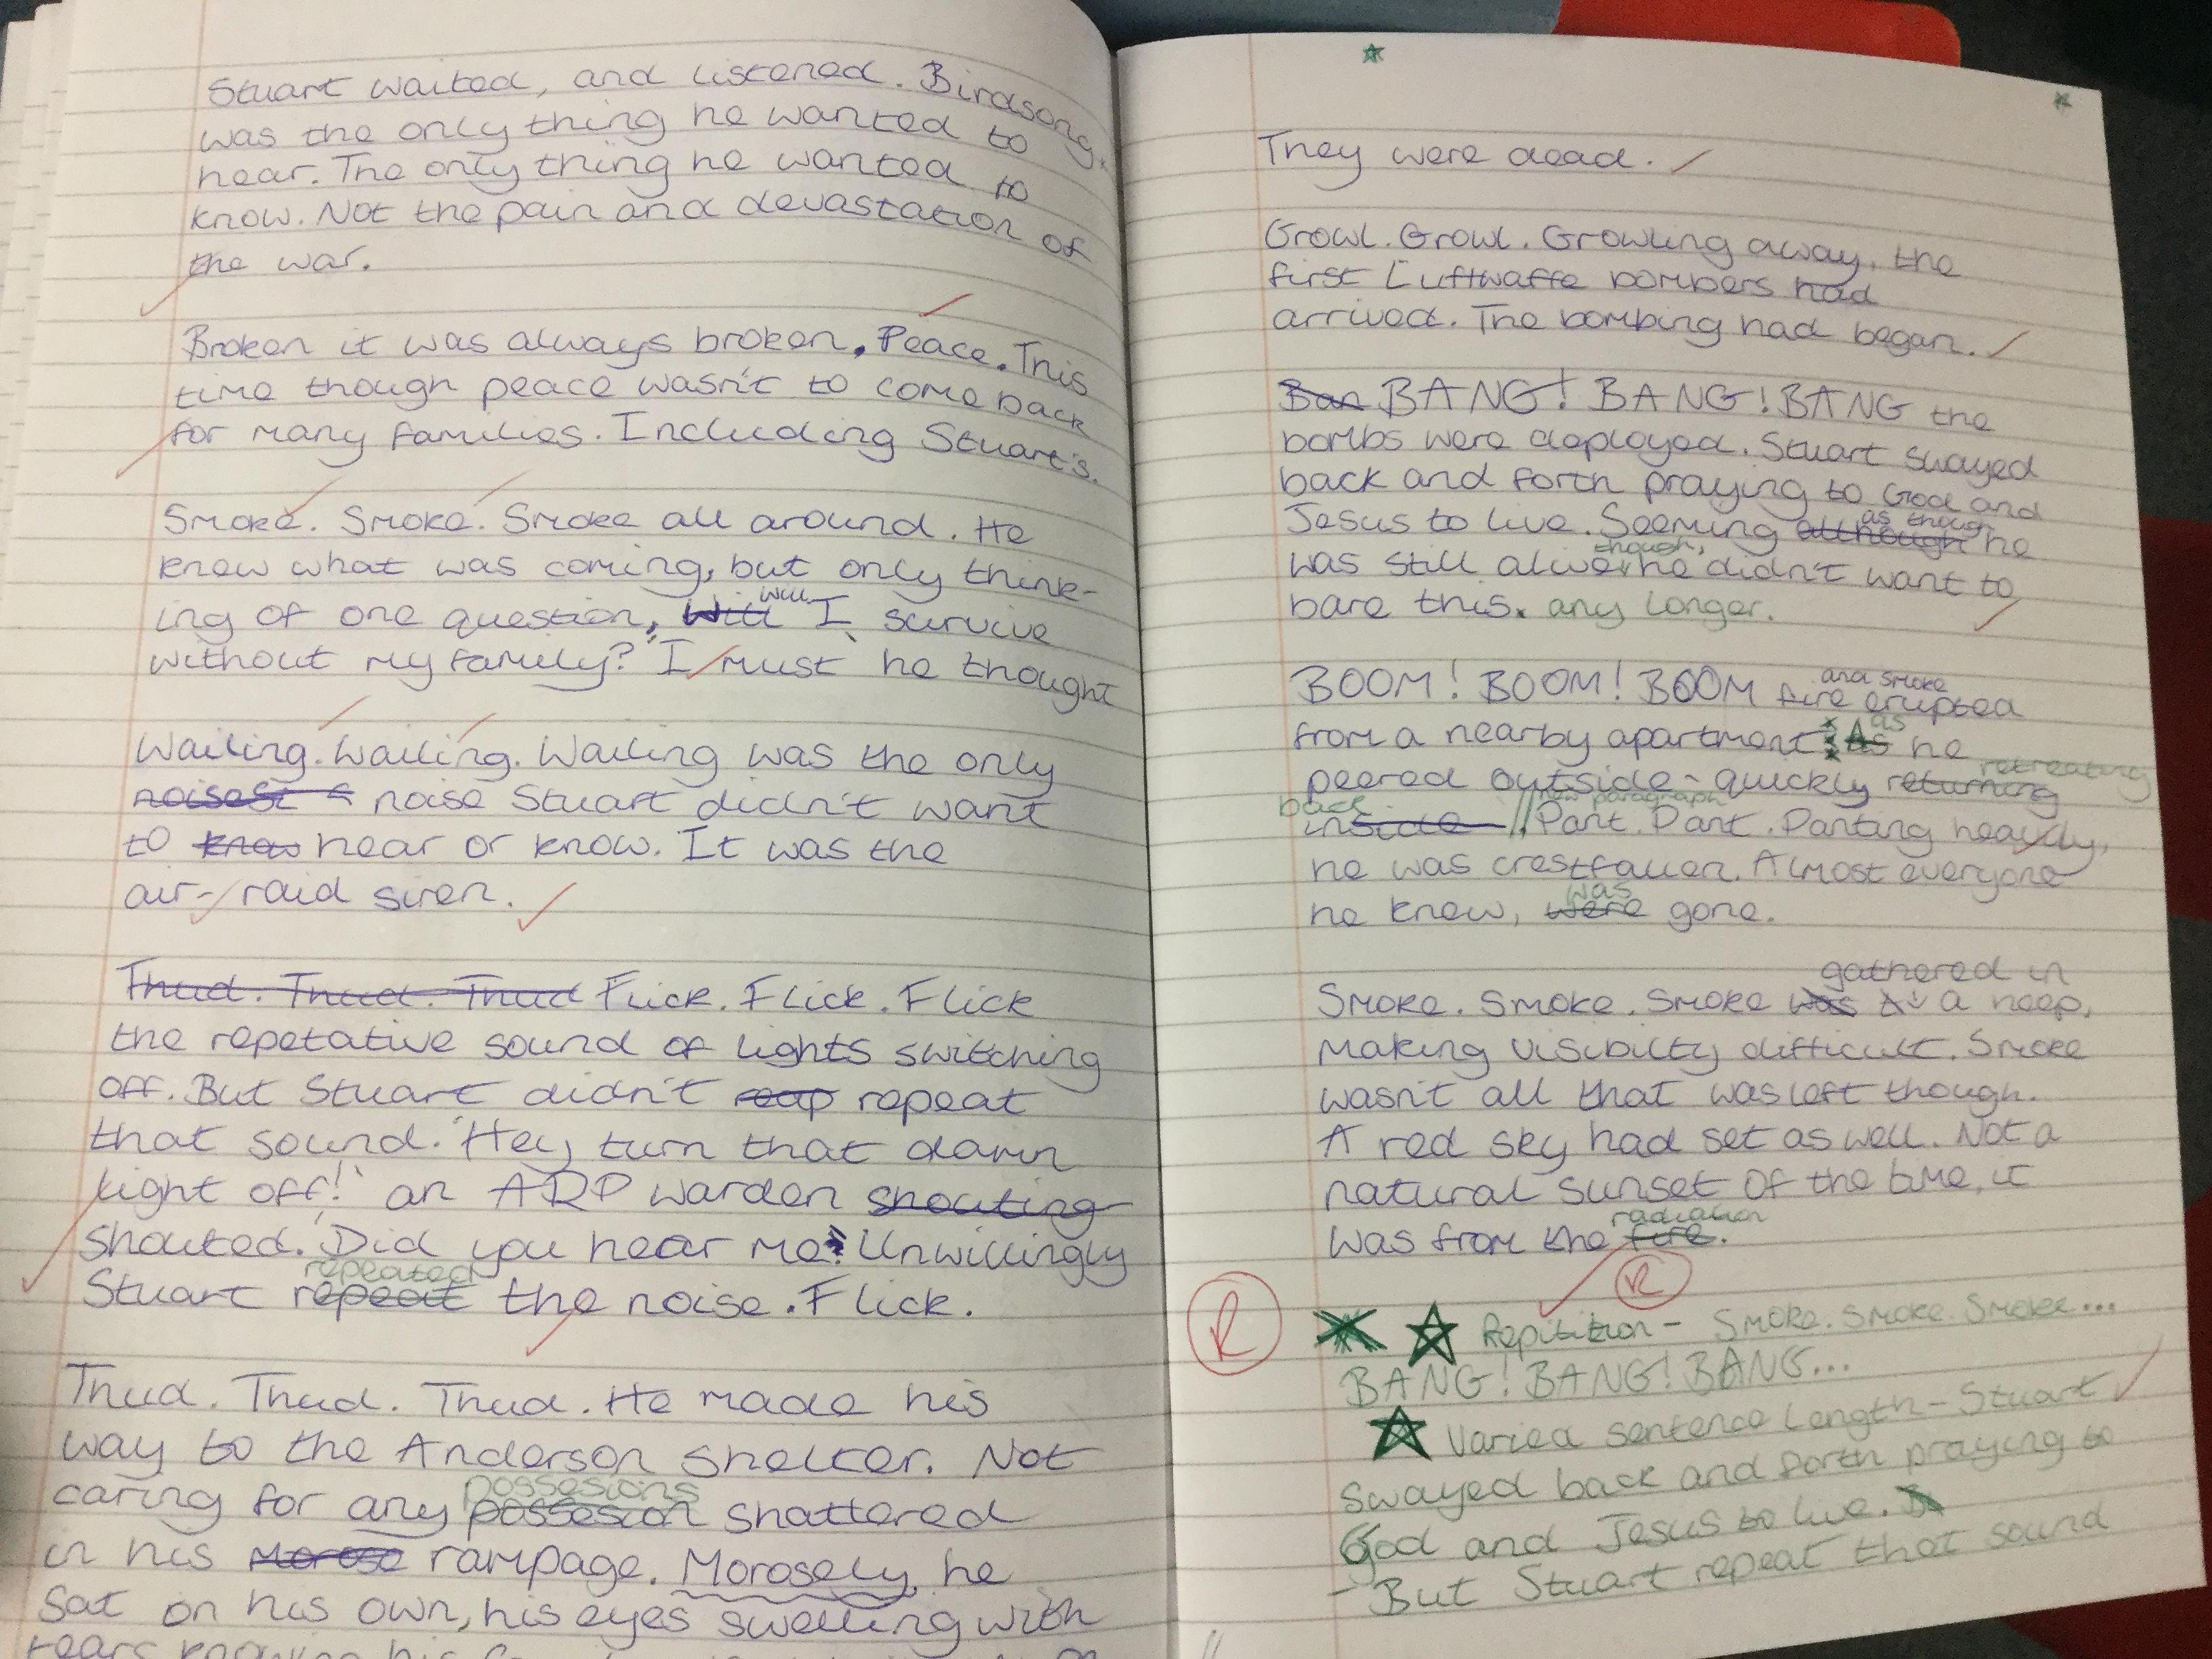 Stuart waited, and listened. Birdsong,
was the only thing he wanted to
hear. The only thing he wanted to
know. Not the pain and devastation of
the war.
Broken it was always broken. Peace. This
time though peace wasn't to come back
for many families. Including Stuart's.
Smoke. Smoke. Smoke all around. He
knew what was coming, but only think-
ing of one question, will I survive
without my family?' 'I must' he thought
Wailing. Wailing. Wailing was the only
noise Stuart didn't want
to hear or know. It was the
air-raid siren.
Thud. Thud. Thud Flick. Flick. Flick
the repetative sound of lights switching
off. But Stuart didn't reap repeat
that sound. 'Hey turn that damn
light off!' an ARP warden shouting
shouted. 'Did you hear me? Unwillingly
repeated
Stuart repeat the noise. Flick.
Thud. Thud. Thud. He made his
way to the Anderson shelter. Not
possesions
caring for any possesion shattered
in his Morose rampage. Morosely, he
sat on his own, his eyes swelling with
tears knowing his
They were dead.
Growl. Growl. Growling away, the
first Luftwaffe bombers had
arrived. The bombing had began.
Ban BANG! BANG! BANG the
bombs were deployed. Stuart swayed
back and forth praying to God and
as though
Jesus to live. Seeming although he
though,
was still alive he didn't want to
bare this. any longer.
and smoke
BOOM! BOOM! BOOM fire erupted
as
from a nearby apartment As he
retreating
peered outside - quickly returning
back new paragraph
inside // Pant. Pant. Panting heavily,
he was crestfallen. Almost everyone
was
he knew, were gone.
gathered in
Smoke. Smoke. Smoke was a heep,
making visibilty difficult. Smoke
wasn't all that was left though.
A red sky had set as well. Not a
natural sunset of the time, it
radiation
was from the fire.
R R
Repitition - Smoke. Smoke. Smoke...
BANG! BANG! BANG...
Varied sentence length - Stuart
swayed back and forth praying to
God and Jesus to live.
- But Stuart repeat that sound